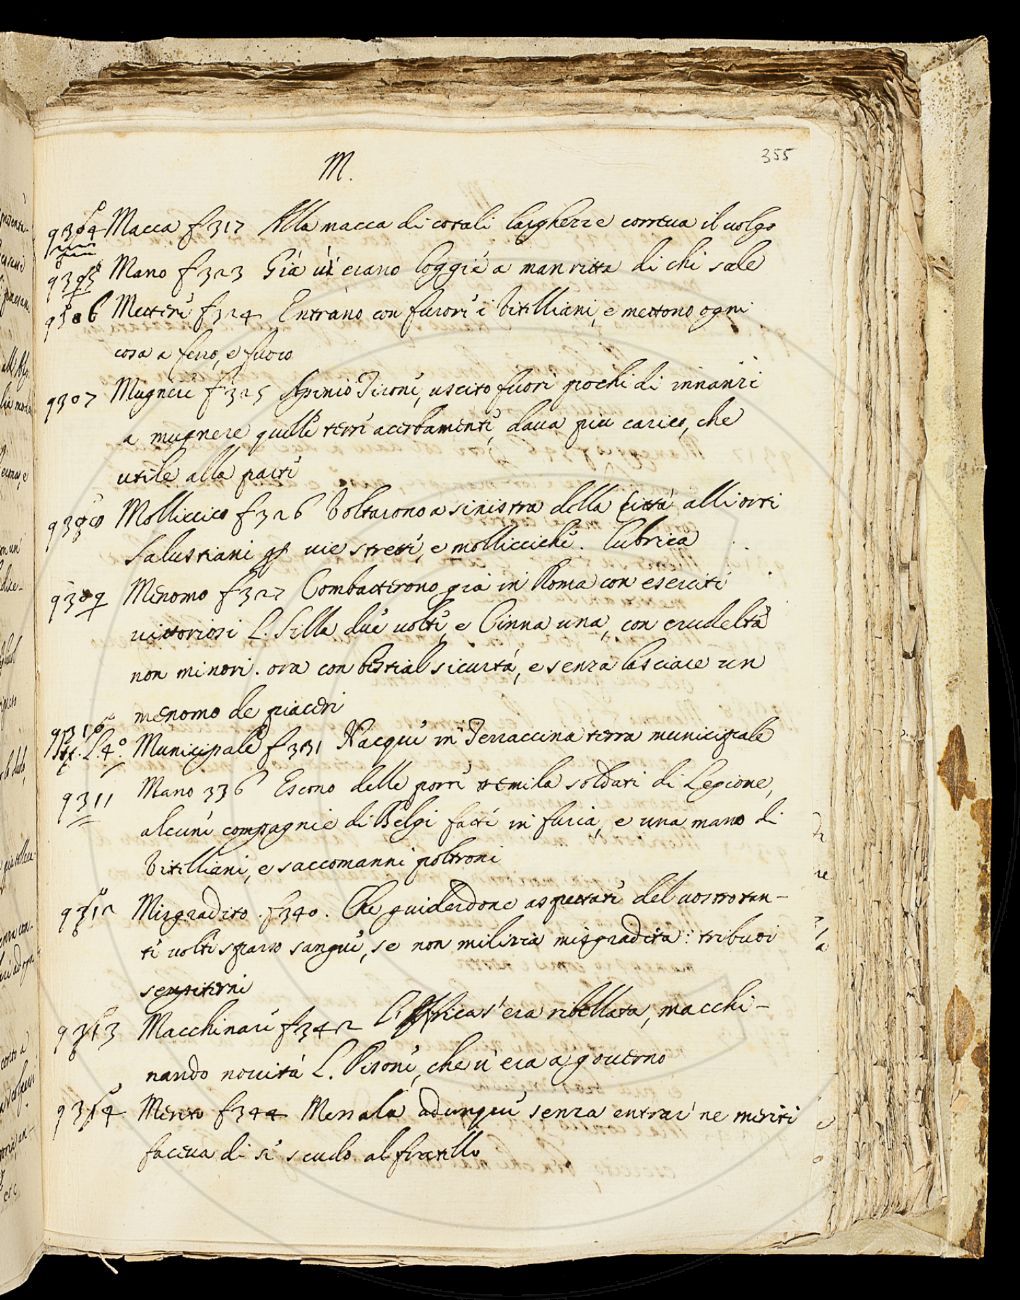 M.
355
9304 Macca f 317 Alla macca di cotali larghezze correua il uolgo
9305 Mano f 323 Già ui erano loggie a man ritta di chi sale
9306 Mettere f 324 Entrano con furori i Vitelliani, e mettono ogni
cosa a ferro, e fuoco
9307 Mugnere f 325 Tironi, uscito fuori pochi di innanzi
a mugnere quelle terre acerbamente, daua piu carico, che
utile alla parte
9308 Molliccico f 326 Voltarono a sinistra della Città alli orti
Salustiani p uie strette, e mollicciche. lubrica
9309 Menomo f 327 Combatterono gia in Roma con eserciti
uittoriosi L. Silla due uolte, e Cinna una, con crudeltà
non minori. ora con bestial sicurtà, e senza lasciare un
menomo de piaceri
9310 Municipale f 331 Nacque in Terraccina terra municipale
9311 Mano 336 Escono delle porte tremila soldati di Legione,
alcune compagnie di Belgi fatte in furia, e una mano di
Vitelliani, e saccomanni poltroni
9312 Misgradito. f 340. Che guiderdone aspettate del uostro tan-
te uolte sparso sangue, se non milizia misgradita: tribuoi
sempiterni
9313 Macchinare f 342 L'Africa s'era ribellata, macchi-
nando nouità L. Pisone, che u'era a gouerno
9314 Merito f 344 Messala adunque senza entrare ne meriti
faceua di sè scudo al fratello